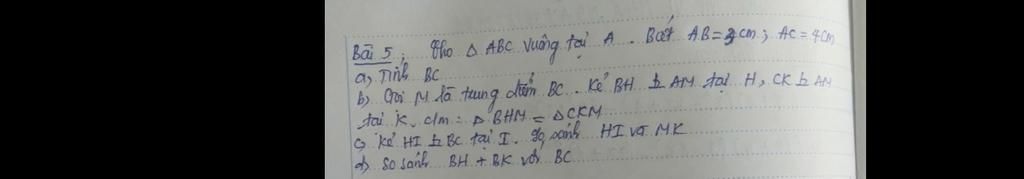 Bài 5: Cho △ ABC vuông tại A. Biết AB=3cm; AC=4cm
a) Tính BC
b) Gọi M là trung điểm BC. Kẻ BH ⊥ AM tại H, CK ⊥ AM
tại K. c/m: △ BHM = △CKM
c) Kẻ HI ⊥ BC tại I. So sánh HI và MK
d) So sánh BH + BK với BC